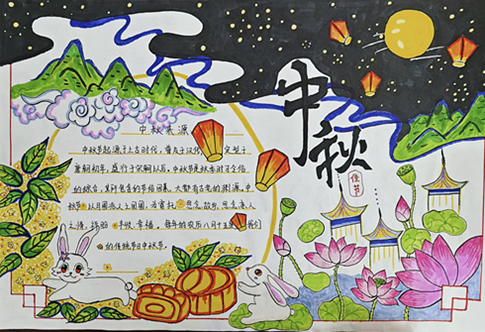 中秋
佳节
中秋来源
中秋节起源于上古时代，普及于汉代，定型于
唐朝初年，盛行于宋朝以后。中秋节是秋季时令习俗
的综合，其所包含的节俗因素，大都有古老的渊源。中
秋节以月圆兆人之团圆，为寄托思念故乡，思念亲人
之情，祈盼丰收、幸福。每年的农历八月十五是我们
的传统节日中秋节。